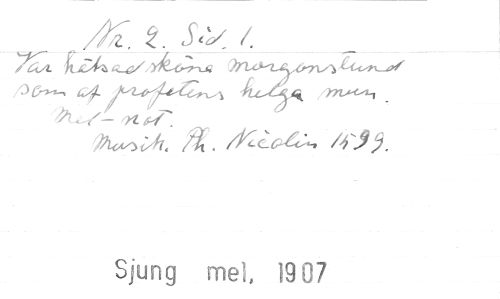 Nr. 2. Sid. 1.
Var hälsad sköna morgonstund
som af profetens helga mun.
Mel-not.
Musik. Ph. Nicolin 1599.
Sjung mel, 1907